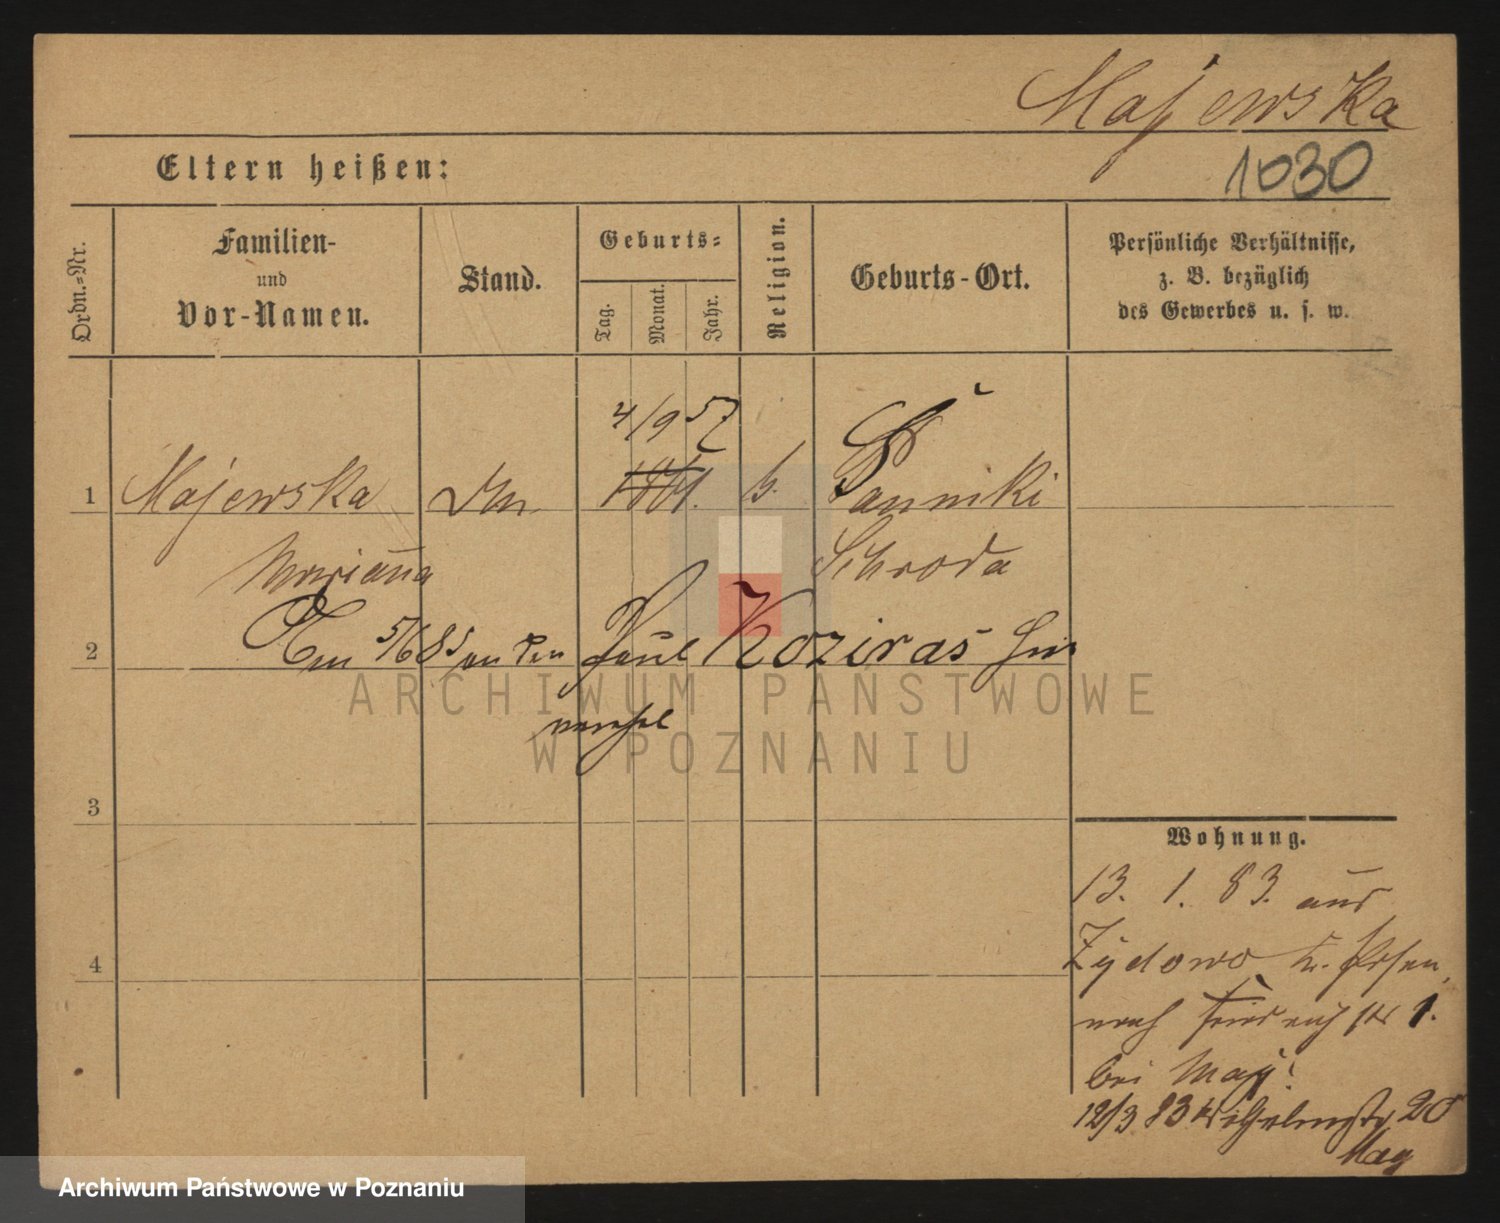 Majewska
1030
Eltern heißen:
Ordn.-Nr.
Familien-
und
Vor-Namen.
Stand.
Geburts-
Tag.
Monat.
Jahr.
Religion.
Geburts-Ort.
Persönliche Verhältnisse,
z. B. bezüglich
des Gewerbes u. s. w.
4/9 57
1 Majewska 1861. Panniki
Marianna Schroda
2 Am 5/6 85 an den Paul Koziras
3
4
Wohnung.
13. 1. 83. aus
Zydowo Kr. Posen,
nach Friedrichstr 1.
bei May.
12/3 83 Wilhelmstr 20
May
ARCHIWUM PAŃSTWOWE
W POZNANIU
Archiwum Państwowe w Poznaniu